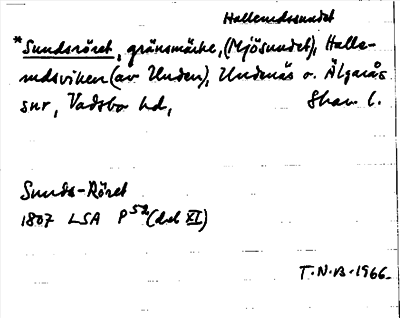 Hallerudssundet
*Sundsröret, gränsmärke, (Mjösundet), Halle-
rudsviken (av Unden), Undenäs o. Älgarås
snr, Vadsbo hd, Skar l.
Sunds-Röret
1807 LSA P 52 (del XI)
T.N.B. 1966.